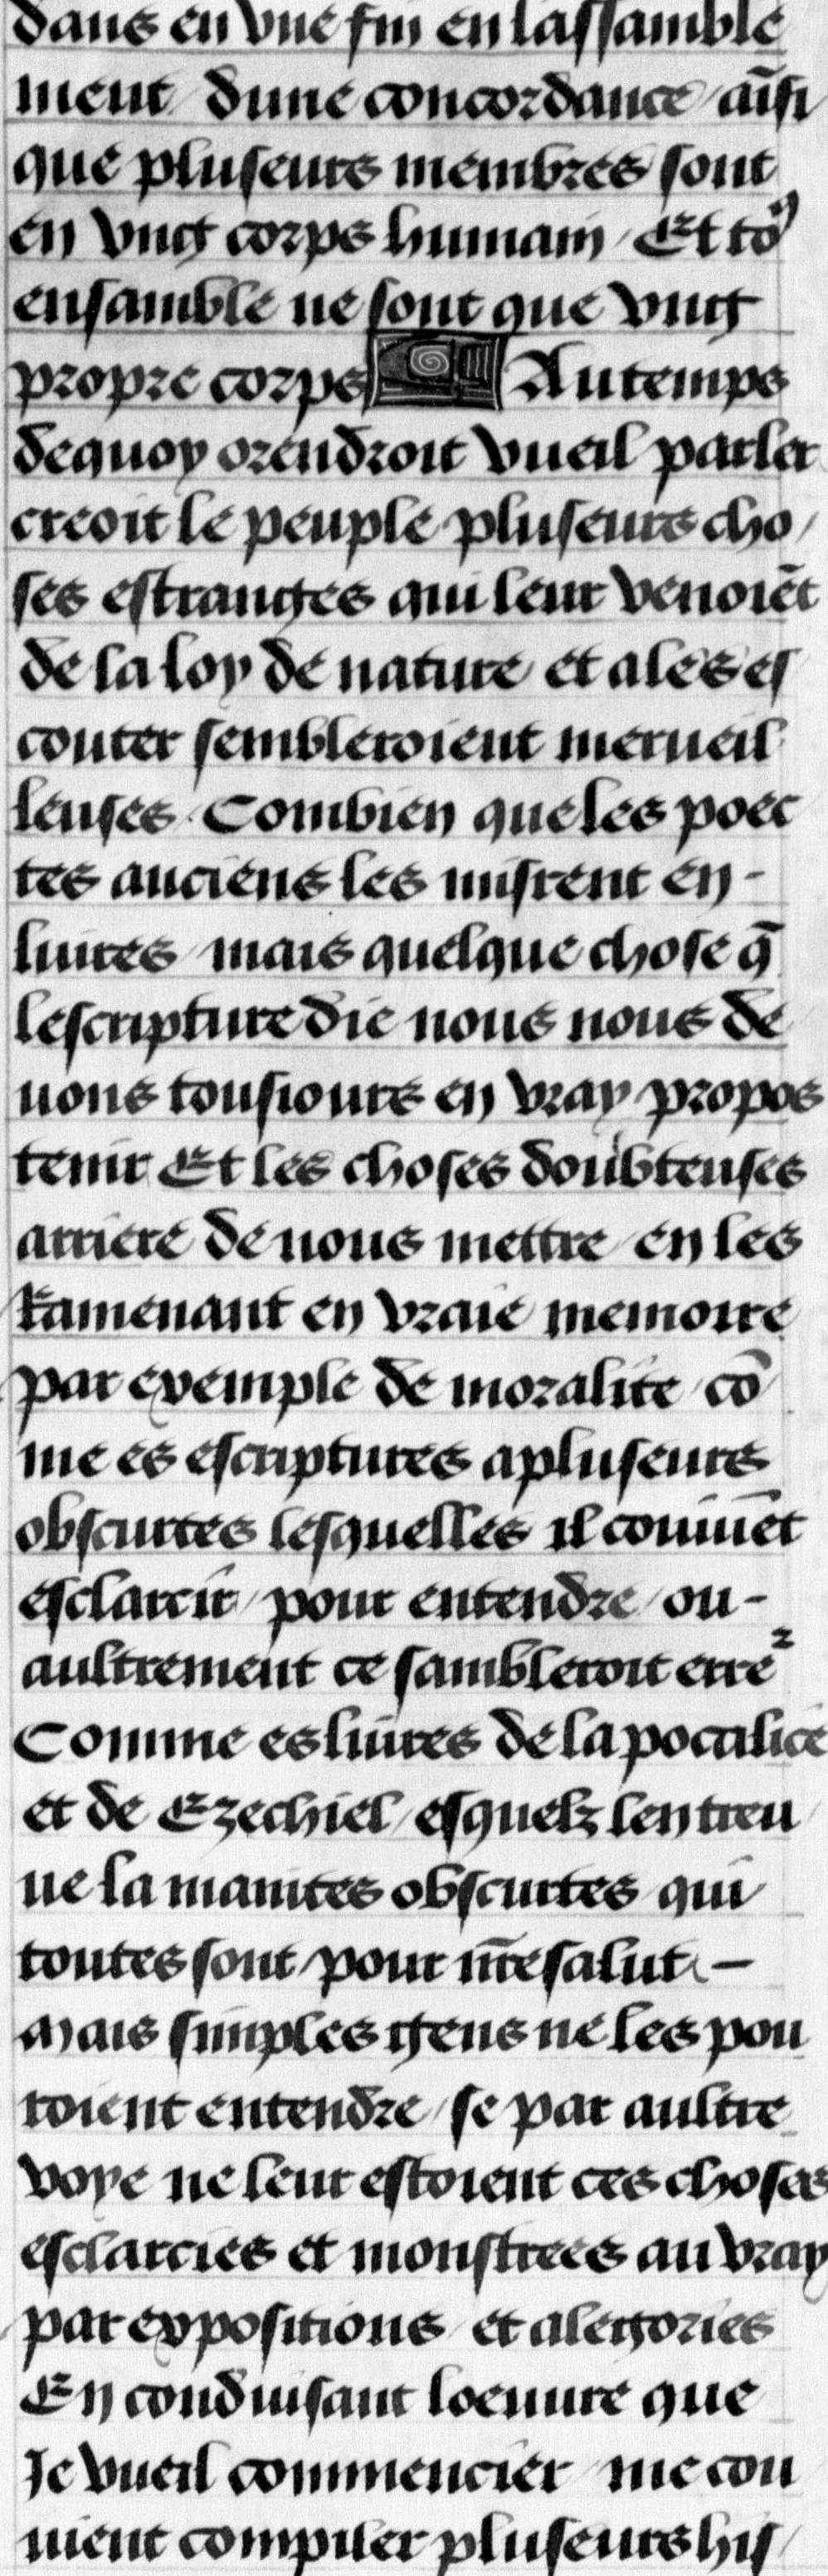 dans en vne fin en lassamble
ment / dune concordance / aīsi
que pluseurs membres sont
en vng corps humain / Et to⁹
ensamble ne sont que vng
propre corps Au temps
dequoy orendroit vueil parler
creoit le peuple pluseurs cho/
ses estranges qui leur venoiēt
de la loy de nature et a les es
couter sembleroient merueil
leuses. Combien que les poec
tes anciens les misrent en -
liures / mais quelque chose q̄
lescripture die nous nous de
uons tousiours en vray propos
tenir Et les choses doubteuses
arriere de nous mettre / en les
Ramenant en vraie memoire
par exemple de moralite / cō
me es escriptures a pluseurs
obscurtes lesquelles il conuiēt
esclarcir / pour entendre / ou -
aultrement ce sambleroit erre²
Comme es liures de lapocalice
et de Ezechiel / esquelz len treu
ue la maintes obscurtes qui
toutes sont / pour nr̄e salut. -
Mais simples gens ne les pou
roient entendre / se par aultre
voye ne leur estoient ces choses
esclarcies et monstrees au vray
par expositions / et alegories
En conduisant loeuure que
Je vueil commencier / me con
uient compiler pluseurs his/